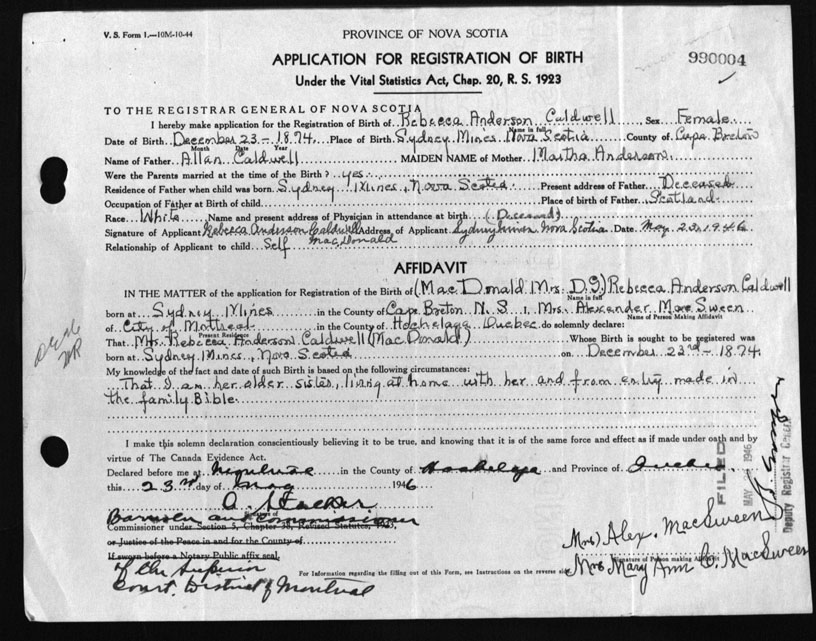 V. S. Form 1.—10M-10-44
PROVINCE OF NOVA SCOTIA
APPLICATION FOR REGISTRATION OF BIRTH
990004
Under the Vital Statistics Act, Chap. 20, R. S. 1923
TO THE REGISTRAR GENERAL OF NOVA SCOTIA
I hereby make application for the Registration of Birth of Rebecca Anderson Caldwell Sex Female
Name in full
Date of Birth December 23 - 1874 Place of Birth Sydney Mines Nova Scotia County of Cape Breton
Month Date Year
Name of Father Allan Caldwell MAIDEN NAME of Mother Martha Anderson
Were the Parents married at the time of the Birth? yes
Residence of Father when child was born Sydney Mines, Nova Scotia Present address of Father Deceased
Occupation of Father at Birth of child Place of birth of Father Scotland
Race White Name and present address of Physician in attendance at birth (Deceased)
Signature of Applicant Rebecca Anderson Caldwell Address of Applicant Sydney Mines Nova Scotia Date May 23, 1946
MacDonald
Relationship of Applicant to child Self
AFFIDAVIT
IN THE MATTER of the application for Registration of the Birth of (MacDonald Mrs. D.) Rebecca Anderson Caldwell
Name in full
born at Sydney Mines in the County of Cape Breton N. S. I, Mrs. Alexander MacSween
Name of Person Making Affidavit
of City of Montreal in the County of Hochelaga Quebec do solemnly declare:
Present Residence
That Mrs. Rebecca Anderson Caldwell (MacDonald) Whose Birth is sought to be registered was
born at Sydney Mines, Nova Scotia on December 23rd - 1874
My knowledge of the fact and date of such Birth is based on the following circumstances:
That I am her older sister, living at home with her and from entry made in
the family Bible.
I make this solemn declaration conscientiously believing it to be true, and knowing that it is of the same force and effect as if made under oath and by
virtue of The Canada Evidence Act.
Declared before me at Montreal in the County of Hochelaga and Province of Quebec
this 23rd day of May 1946
Signature of
Barrister and Commissioner
Commissioner under Section 5, Chapter 38, Revised Statutes, 1923
or Justice of the Peace in and for the County of
If sworn before a Notary Public affix seal.
of the Superior
Court, District of Montreal
For Information regarding the filling out of this Form, see Instructions on the reverse side.
Mrs) Alex. MacSween
Signature of Person making Affidavit
Mrs Mary Ann C. MacSween
FILED
MAY 1946
Deputy Registrar General